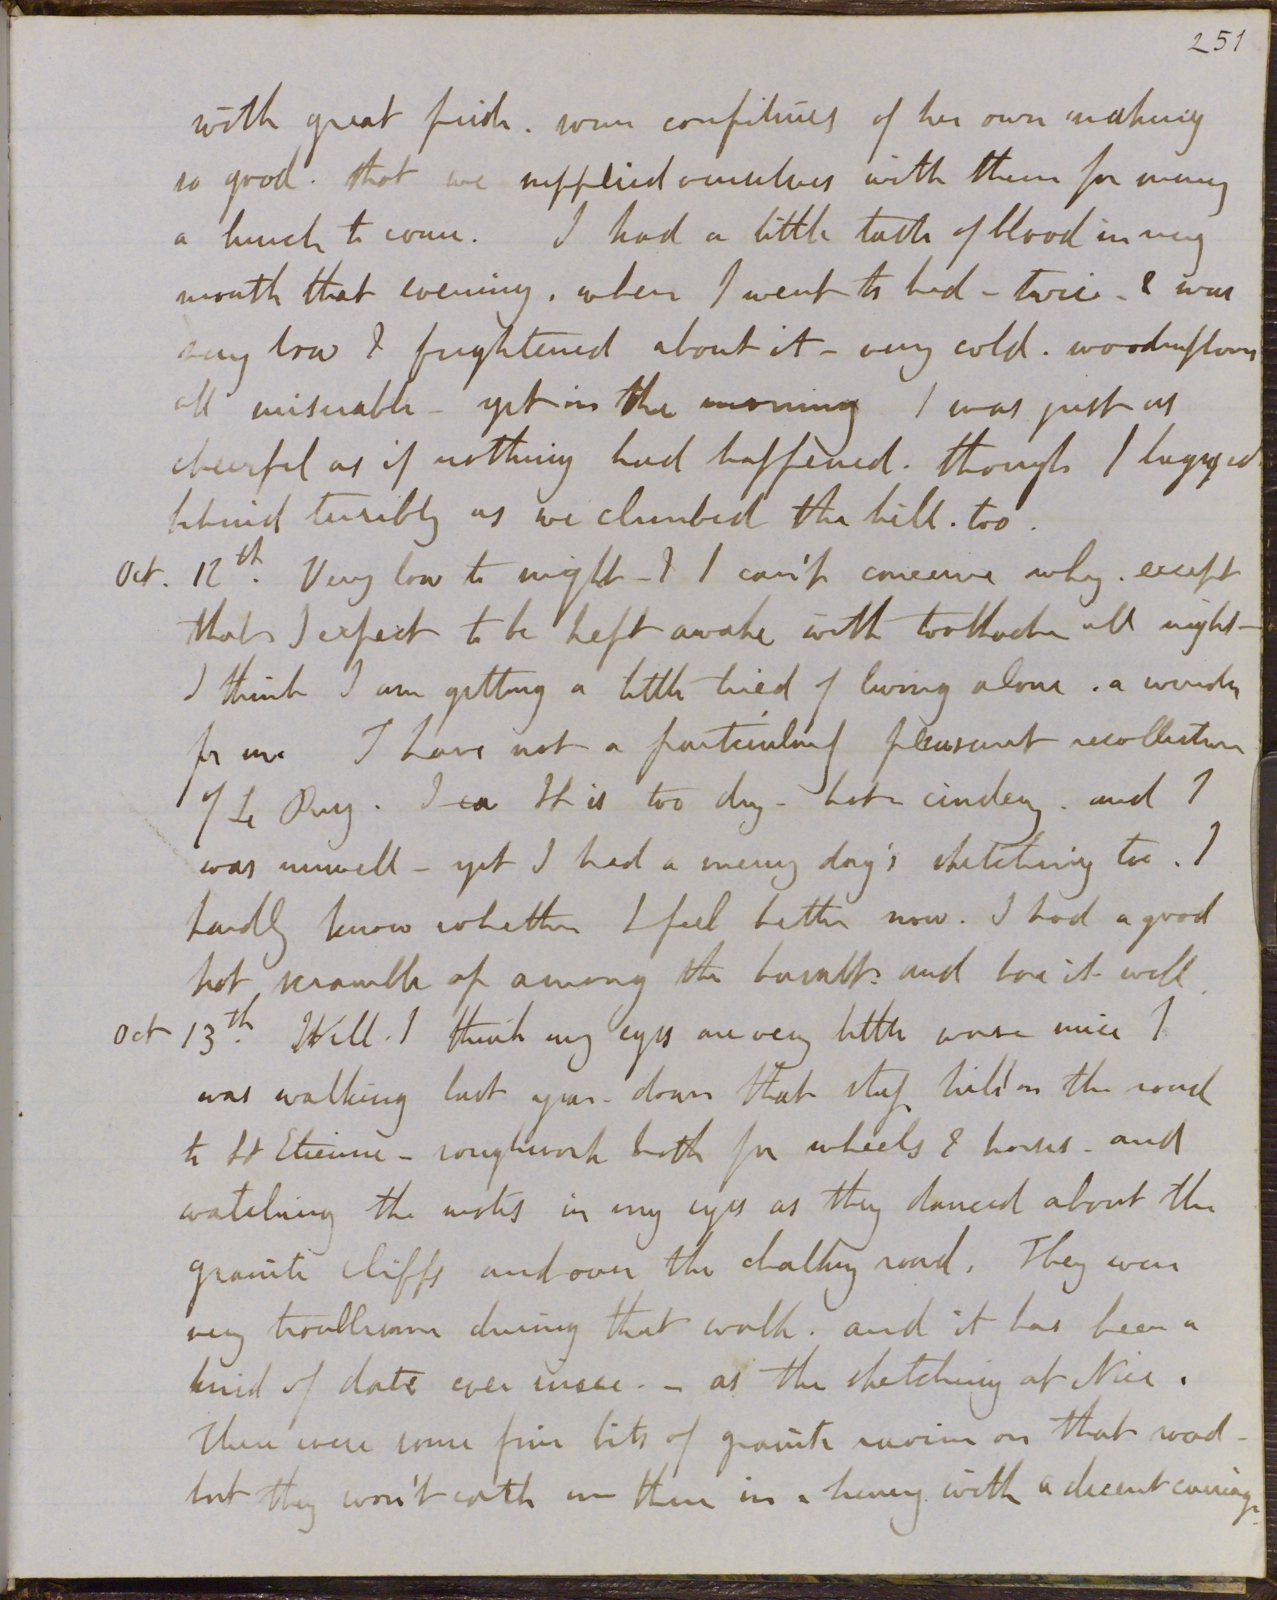 251
with great pride. some confitures of her own making
so good. that we supplied ourselves with them for many
a lunch to come. I had a little taste of blood in my
mouth that evening, when I went to bed - twice - & was
very low & frightened about it - very cold. wooden floors
all miserable - yet in the morning I was just as
cheerful as if nothing had happened. though I lagged
behind terribly as we climbed the hill. too.
Oct. 12th. Very low to night - & I can't conceive why. except
that I expect to be kept awake with toothache all night -
I think I am getting a little tired of living alone. a wonder
for me I have not a particularly pleasant recollection
of Le Puy. I ca It is too dry - hot - cindery. and I
was unwell - yet I had a merry day's sketching too. I
hardly know whether I feel better now. I had a good
hot scramble up among the basalts. and bore it well.
Oct 13th. Well. I think my eyes are very little worse since I
was walking last year - down that steep hill on the road
to St Etienne - rough work both for wheels & horses - and
watching the motes in my eyes as they danced about the
granite cliffs and over the chalky road. They were
very troublesome during that walk. and it has been a
kind of date ever since. - as the sketching at Nice.
There were some fine bits of granite ravine on that road -
but they won't catch me there in a hurry with a decent carriage.